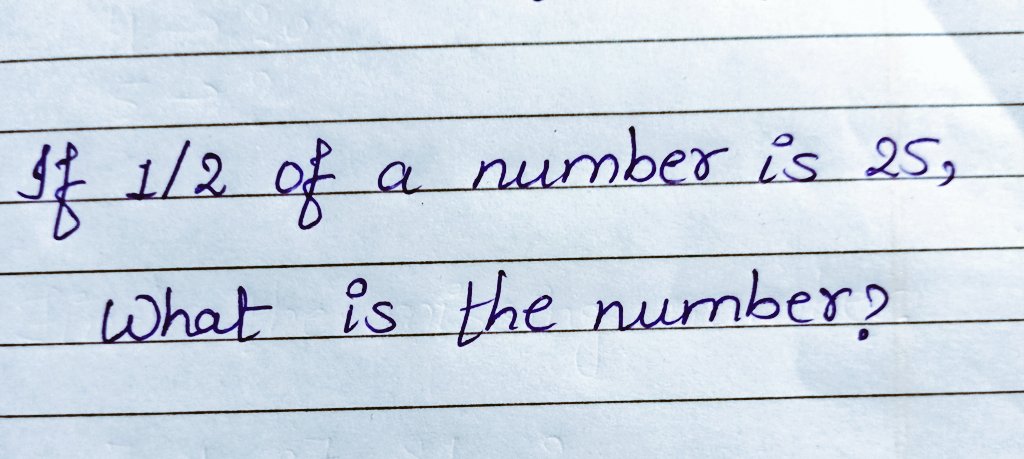 If 1/2 of a number is 25,
What is the number?